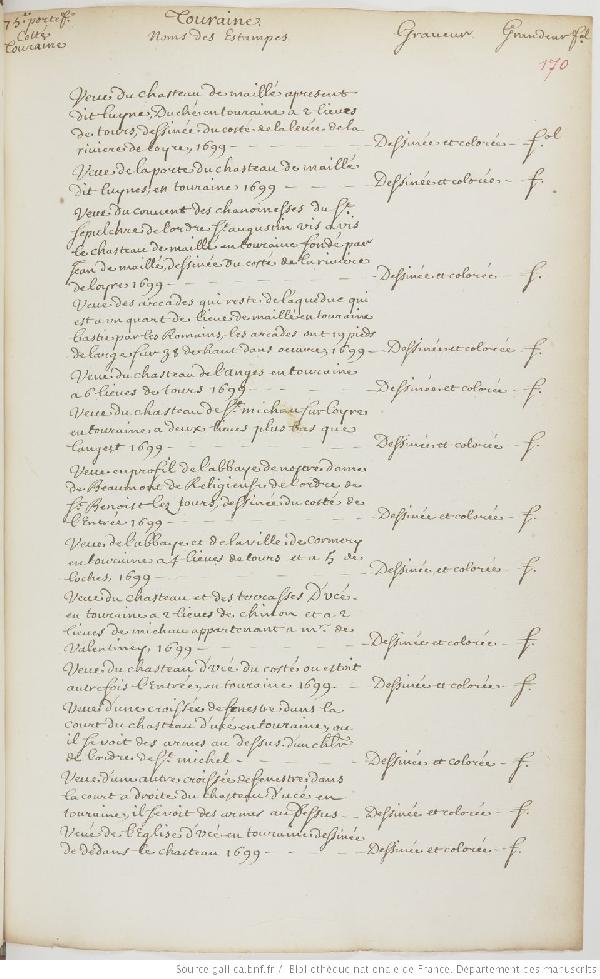 75e. portef.
Cotté
Touraine
Touraine
Noms des Estampes. Graveur. Grandeur fol
170
Veue du chasteau de maillé apresent
dit Luyne, Duché en touraine a 2 lieues
de tours, dessinée du costé de la levée de la
riviere de Loyre, 1699 — Dessinée et colorée — fol
Veue de la porte du chasteau de maillé
dit Luynes, en touraine 1699 — Dessinée et colorée — f.
Veue du couvent des chanoinesses du St.
sepulchre de l'ordre St. augustin vis a vis
le chasteau de maillé en touraine fondé par
Jean de maillé, dessinée du costé de la riviere
de loyre 1699 — Dessinée et colorée — f.
Veue des arccades qui reste de l'aqueduc qui
est a un quart de lieue de maillé en touraine
bastie par les Romains, les arcades ont 19 pieds
de large sur 38 de haut dans oeuvre, 1699 — Dessinée et colorée — f.
Veue du chasteau de l'anges en touraine
a 6 lieues de tours 1699 — Dessinée et colorée — f.
Veue du chasteau de St. michau sur loyre
en touraine a deux lieues plus bas que
langest 1699 — Dessinée et colorée — f.
Veue en profil de l'abbaye de nostre dame
de Beaumont de Religieuse de l'ordre de
St. Benoist les tours, dessinée du costé de
l'Entrée 1699 — Dessinée et colorée — f.
Veue de l'abbaye et de la ville de cormery
en touraine a 4 lieues de tours et a 5 de
loches, 1699 — Dessinée et colorée — f.
Veue du chasteau et des terrasses D'ucé
en touraine a 2 lieues de chinon et a 2
lieues de michau appartenant a mr. de
Valentiney, 1699 — Dessinée et colorée — f.
Veue du chasteau d'ucé du costé ou estoit
autrefois l'Entrée, en touraine 1699. — Dessinée et colorée — f.
Veue d'une croissée de fenestre dans la
court du chasteau D'ucé en touraine, ou
il se voit des armes au dessus d'un chlr.
de l'ordre de St. michel — Dessinée et colorée — f.
Veue d'une autre croissée de fenestre dans
la court a droite du chasteau d'ucé en
touraine, il se voit des armes au Dessus — Dessinée et colorée — f.
Veue de l'Eglise d'ucé en touraine dessinée
de dedans le chasteau 1699 — Dessinée et colorée — f.
Source gallica.bnf.fr / Bibliothèque nationale de France. Département des manuscrits